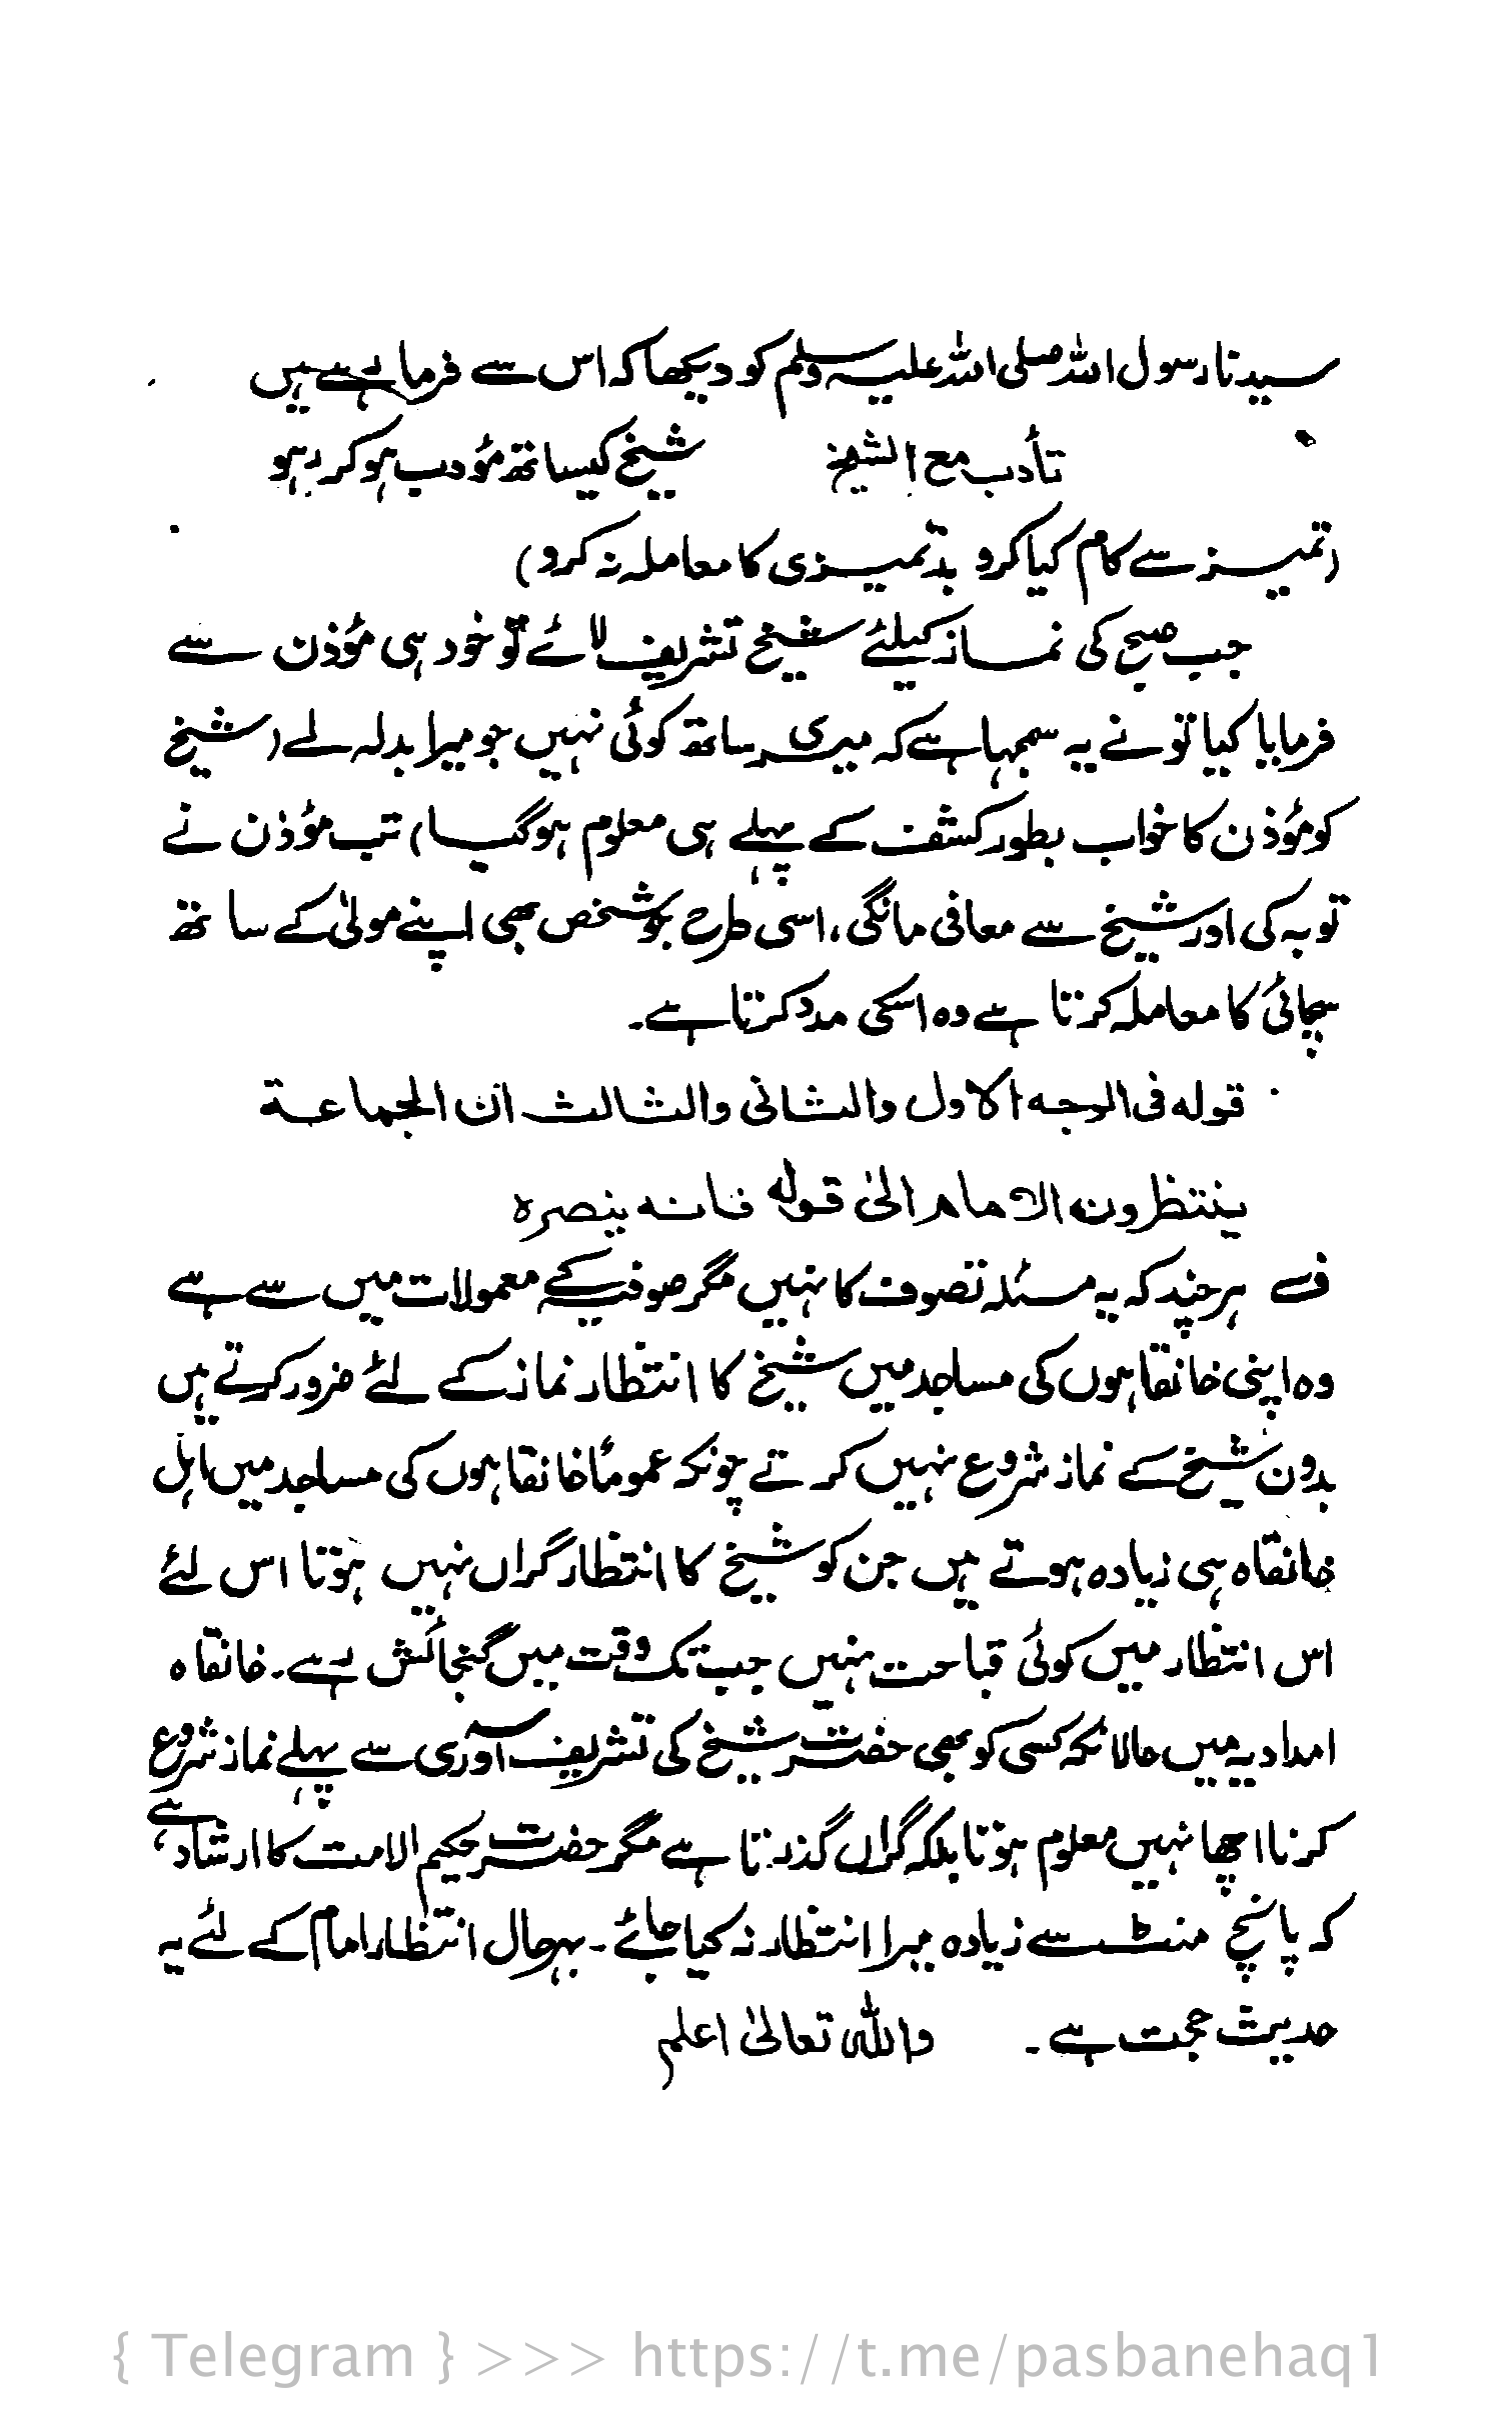 سیدنا رسول اللہ صلی اللہ علیہ وسلم کو دیکھا کہ اس سے فرما رہے ہیں
تأدب مع الشیخ شیخ کیساتھ مؤدب ہو کر رہو
(تمیز سے کام کیا کرو بدتمیزی کا معاملہ نہ کرو)
جب صبح کی نماز کیلئے شیخ تشریف لائے تو خود ہی مؤذن سے
فرمایا کیا تو نے یہ سمجہا ہے کہ میرے ساتھ کوئی نہیں جو میرا بدلہ لے (شیخ
کو مؤذن کا خواب بطور کشف کے پہلے ہی معلوم ہوگیا) تب مؤذن نے
توبہ کی اور شیخ سے معافی مانگی، اسی طرح جو شخص بھی اپنے مولیٰ کے ساتھ
سچائی کا معاملہ کرتا ہے وہ اسکی مدد کرتا ہے۔
قوله فى الوجه الاول والثانى والثالث ان الجماعة
ينتظرون الامام الىٰ قوله فانه ينصره
ف ہر چند کہ یہ مسئلہ تصوف کا نہیں مگر صوفیہ کے معمولات میں سے ہے
وہ اپنی خانقاہوں کی مساجد میں شیخ کا انتظار نماز کے لئے ضرور کرتے ہیں
بدون شیخ کے نماز شروع نہیں کرتے چونکہ عموماً خانقاہوں کی مساجد میں اہل
خانقاہ ہی زیادہ ہوتے ہیں جن کو شیخ کا انتظار گراں نہیں ہوتا اس لئے
اس انتظار میں کوئی قباحت نہیں جب تک وقت میں گنجائش ہے۔ خانقاہ
امدادیہ میں حالانکہ کسی کو بھی حضرت شیخ کی تشریف آوری سے پہلے نماز شروع
کرنا اچھا نہیں معلوم ہوتا بلکہ گراں گذرتا ہے مگر حضرت حکیم الامت کا ارشاد ہے
کہ پانچ منٹ سے زیادہ میرا انتظار نہ کیا جائے۔ بہرحال انتظار امام کے لئے یہ
حدیث حجت ہے۔ واللہ تعالیٰ اعلم
{ Telegram } >>> https://t.me/pasbanehaq1